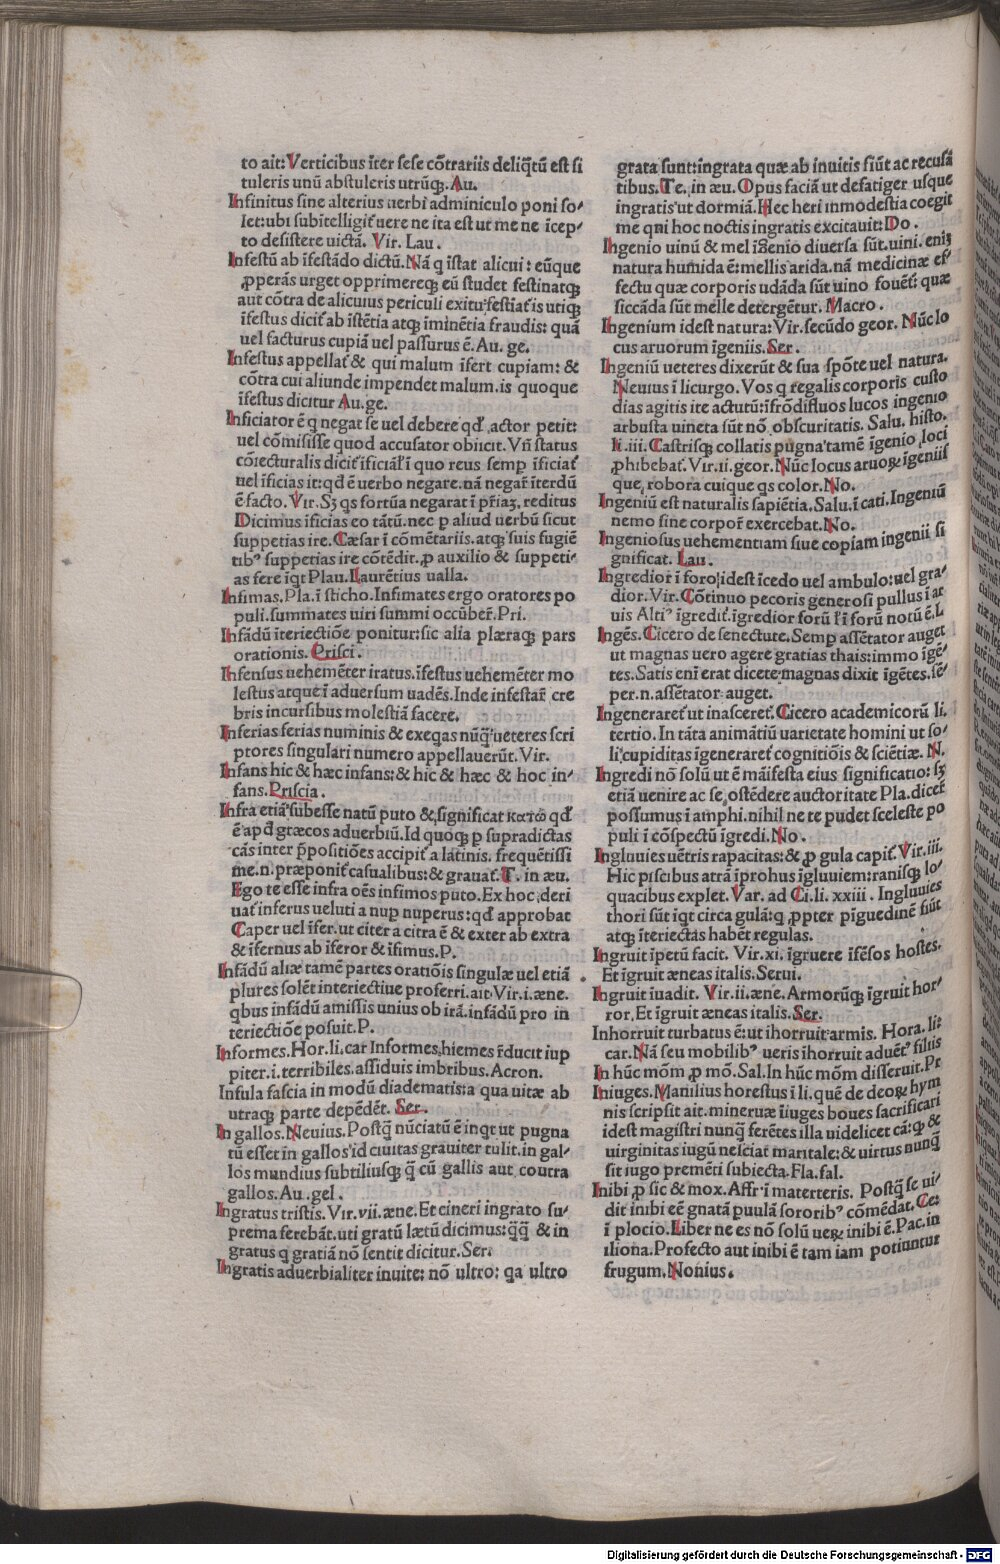 to ait: Verticibus īter sese cōtrariis deliq̄tū est si
tuleris unū abstuleris utrūq;. Au.
Infinitus sine alterius uerbi adminiculo poni so⸗
let: ubi subītelligit̄ uere ne ita est ut me ne īcep⸗
to desistere uictā. Vir. Lau.
Infestū ab īfestādo dictū. Nā q īstat alicui: eūque
ꝓperās urget opprimereq; eū studet festinatq;
aut cōtra de alicuius periculi exitu festiat̄ is utiq;
īfestus dicit̄ ab īstētia atq; iminētia fraudis: quā
uel facturus cupiā uel passurus ē. Au. ge.
Infestus appellat̄ & qui malum īfert cupiam: &
cōtra cui aliunde impendet malum. is quoque
īfestus dicitur Au. ge.
Inficiator ē q negat se uel debere qd̄ actor petit:
uel cōmisisse quod accusator obiicit. Vn̄ status
cōiecturalis dicit̄ īficiāl̄ ī quo reus semp īficiat̄
uel īficias it: qd̄ ē uerbo negare. nā negar̄ īterdū
ē facto. Vir. Sꝫ qs fortūa negarat ī pr̄iaꝫ, reditus
Dicimus īficias eo tātū. nec p aliud uerbū sicut
suppetias ire. Cæsar ī cōmētariis. atq; suis fugiē
tibꝰ suppetias ire cōtēdit. ꝓ auxilio & suppeti⸗
as fere iqt Plau. Laurētius ualla.
Infimas. Pla. ī sticho. Infimates ergo oratores po
puli. summates uiri summi occūber̄. Pri.
Infādū īteriectiōe ponitur: sic alia plæraq; pars
orationis. Prisci.
Infensus uehemēter iratus. īfestus uehemēter mo
lestus atque ī aduersum uadēs. Inde infestar̄ cre
bris incursibus molestiā facere.
Inferias ferias numinis & exeqas nūq̄ ueteres scri
ptores singulari numero appellauerūt. Vir.
Infans hic & hæc infans: & hic & hæc & hoc in⸗
fans. Priscia.
Infra etiā subesse natū puto & significat κατω qd̄
ē apd̄ græcos aduerbiū. Id quoq; p supradictas
cās inter p̄positiōes accipit̄ a latinis. frequētissi
me. n. præponit̄ casualibus: & grauat̄. T. in æu.
Ego te esse infra oēs infimos puto. Ex hoc deri
uat̄ inferus ueluti a nup nuperus: qd̄ approbat
Caper uel īfer. ut citer a citra ē & exter ab extra
& īfernus ab īferor & īfimus. P.
Infādū aliæ tamē partes oratiōis singulæ uel etiā
plures solēt interiectiue proferri. ait Vir. i. æne.
qbus infādū amissis unius ob irā. infādū pro in
teriectiōe posuit. P.
Informes. Hor. li. car Informes hiemes r̄ducit iup
piter. i. terribiles. assiduis imbribus. Acron.
Infula fascia in modū diadematis: a qua uitæ ab
utraq; parte depēdēt. Ser.
In gallos. Neuius. Postq̄ nūciatū ē inqt ut pugna
tū esset in gallos id ciuitas grauiter tulit. in gal⸗
los mundius subtiliusq; q̄ cū gallis aut coutra
gallos. Au. gel.
Ingratus tristis. Vir. vii. æne. Et cineri ingrato su⸗
prema ferebāt. uti gratū lætū dicimus: q̄q̄ & in
gratus q gratiā nō sentit dicitur. Ser.
Ingratis aduerbialiter inuite: nō ultro: qa ultro
grata sunt: ingrata quæ ab inuitis fiūt ac recusā
tibus. Te. in æu. Opus faciā ut defatiger usque
ingratis ut dormiā. Hec heri inmodestia coegit
me qni hoc noctis ingratis excitauit: Do.
Ingenio uinū & mel īgenio diuersa sūt. uini. eniꝫ
natura humida ē: mellis arida. nā medicinæ ef⸗
fectu quæ corporis udāda sūt uino fouēt̄: quæ
siccāda sūt melle detergētur. Macro.
Ingenium idest natura: Vir. secūdo geor. Nūc lo
cus aruorum īgeniis. Ser.
Ingeniū ueteres dixerūt & sua spōte uel natura.
Neuius ī licurgo. Vos q regalis corporis custo
dias agitis ite actutū: ī frōdifluos lucos ingenio
arbusta uineta sūt nō obscuritatis. Salu. histo.
li. iii. Castrisq; collatis pugna tamē īgenio loci
ꝓhibebat̄. Vir. ii. geor. Nūc locus aruoꝝ īgeniis
que, robora cuique qs color. No.
Ingeniū est naturalis sapiētia. Salu. ī cati. Ingeniū
nemo sine corpor̄ exercebat. No.
Ingeniosus uehementiam siue copiam ingenii si
gnificat. Lau.
Ingredior ī foro idest īcedo uel ambulo: uel gra⸗
dior. Vir. Cōtinuo pecoris generosi pullus ī ar
uis Altiꝰ īgredit̄. īgredior forū l̄ ī forū notū ē. L
Ingēs. Cicero de senectute. Semp assētator auget
ut magnas uero agere gratias thais: immo īgē⸗
tes. Satis eni erat dicete magnas dixit īgētes. sē⸗
per. n. assētator auget.
Ingeneraret̄ ut inasceret̄. Cicero academicorū li.
tertio. In tāta animātiū uarietate homini ut so⸗
li cupiditas īgeneraret̄ cognitiōis & sciētiæ. N.
Ingredi nō solū ut ē māifesta eius significatio: sꝫ
etiā uenire ac se ostēdere auctoritate Pla. dicer̄
possumus ī amphi. nihil ne te pudet sceleste po
puli ī cōspectū īgredi. No.
Ingluuies uētris rapacitas: & ꝓ gula capit̄. Vir. iii.
Hic piscibus atrā īprobus īgluuiem: ranisq; lo⸗
quacibus explet. Var. ad Ci. li. xxiii. Ingluuies
thori sūt iqt circa gulā: q ꝓpter pīguedinē fiūt
atq; īteriectas habēt regulas.
Ingruit īpetū facit. Vir. xi. īgruere īfēsos hostes.
Et īgruit æneas italis. Serui.
Ingruit īuadit. Vir. ii. æne. Armorūq; īgruit hor⸗
ror. Et īgruit æneas italis. Ser.
Inhorruit turbatus ē: ut ihorruit armis. Hora. li:
car. Nā seu mobilibꝰ ueris īhorruit aduētꝰ filiis
In hūc mōm ꝓ mō. Sal. In hūc mōm disseruit. Pr
Iniuges. Manilius horestus ī li. quē de deoꝝ hym
nis scripsit ait. mineruæ īiuges boues sacrificari
idest magistri nunq̄ ferētes illa uidelicet cā: q & 
uirginitas iugū nesciat maritale: & uirtus nunq̄
sit iugo premēti subiecta. Fla. fal.
Inibi ꝓ sic & mox. Affr̄ ī materteris. Postq̄ se ui⸗
dit inibi eē gnatā puulā sororibꝰ cōmēdat. Ce:
ī plocio. Liber ne es nō solū ueꝝ inibi ē. Pac. in
iliona. Profecto aut inibi ē tam iam potiuntur
frugum. Nonius.
Digitalisierung gefördert durch die Deutsche Forschungsgemeinschaft - DFG